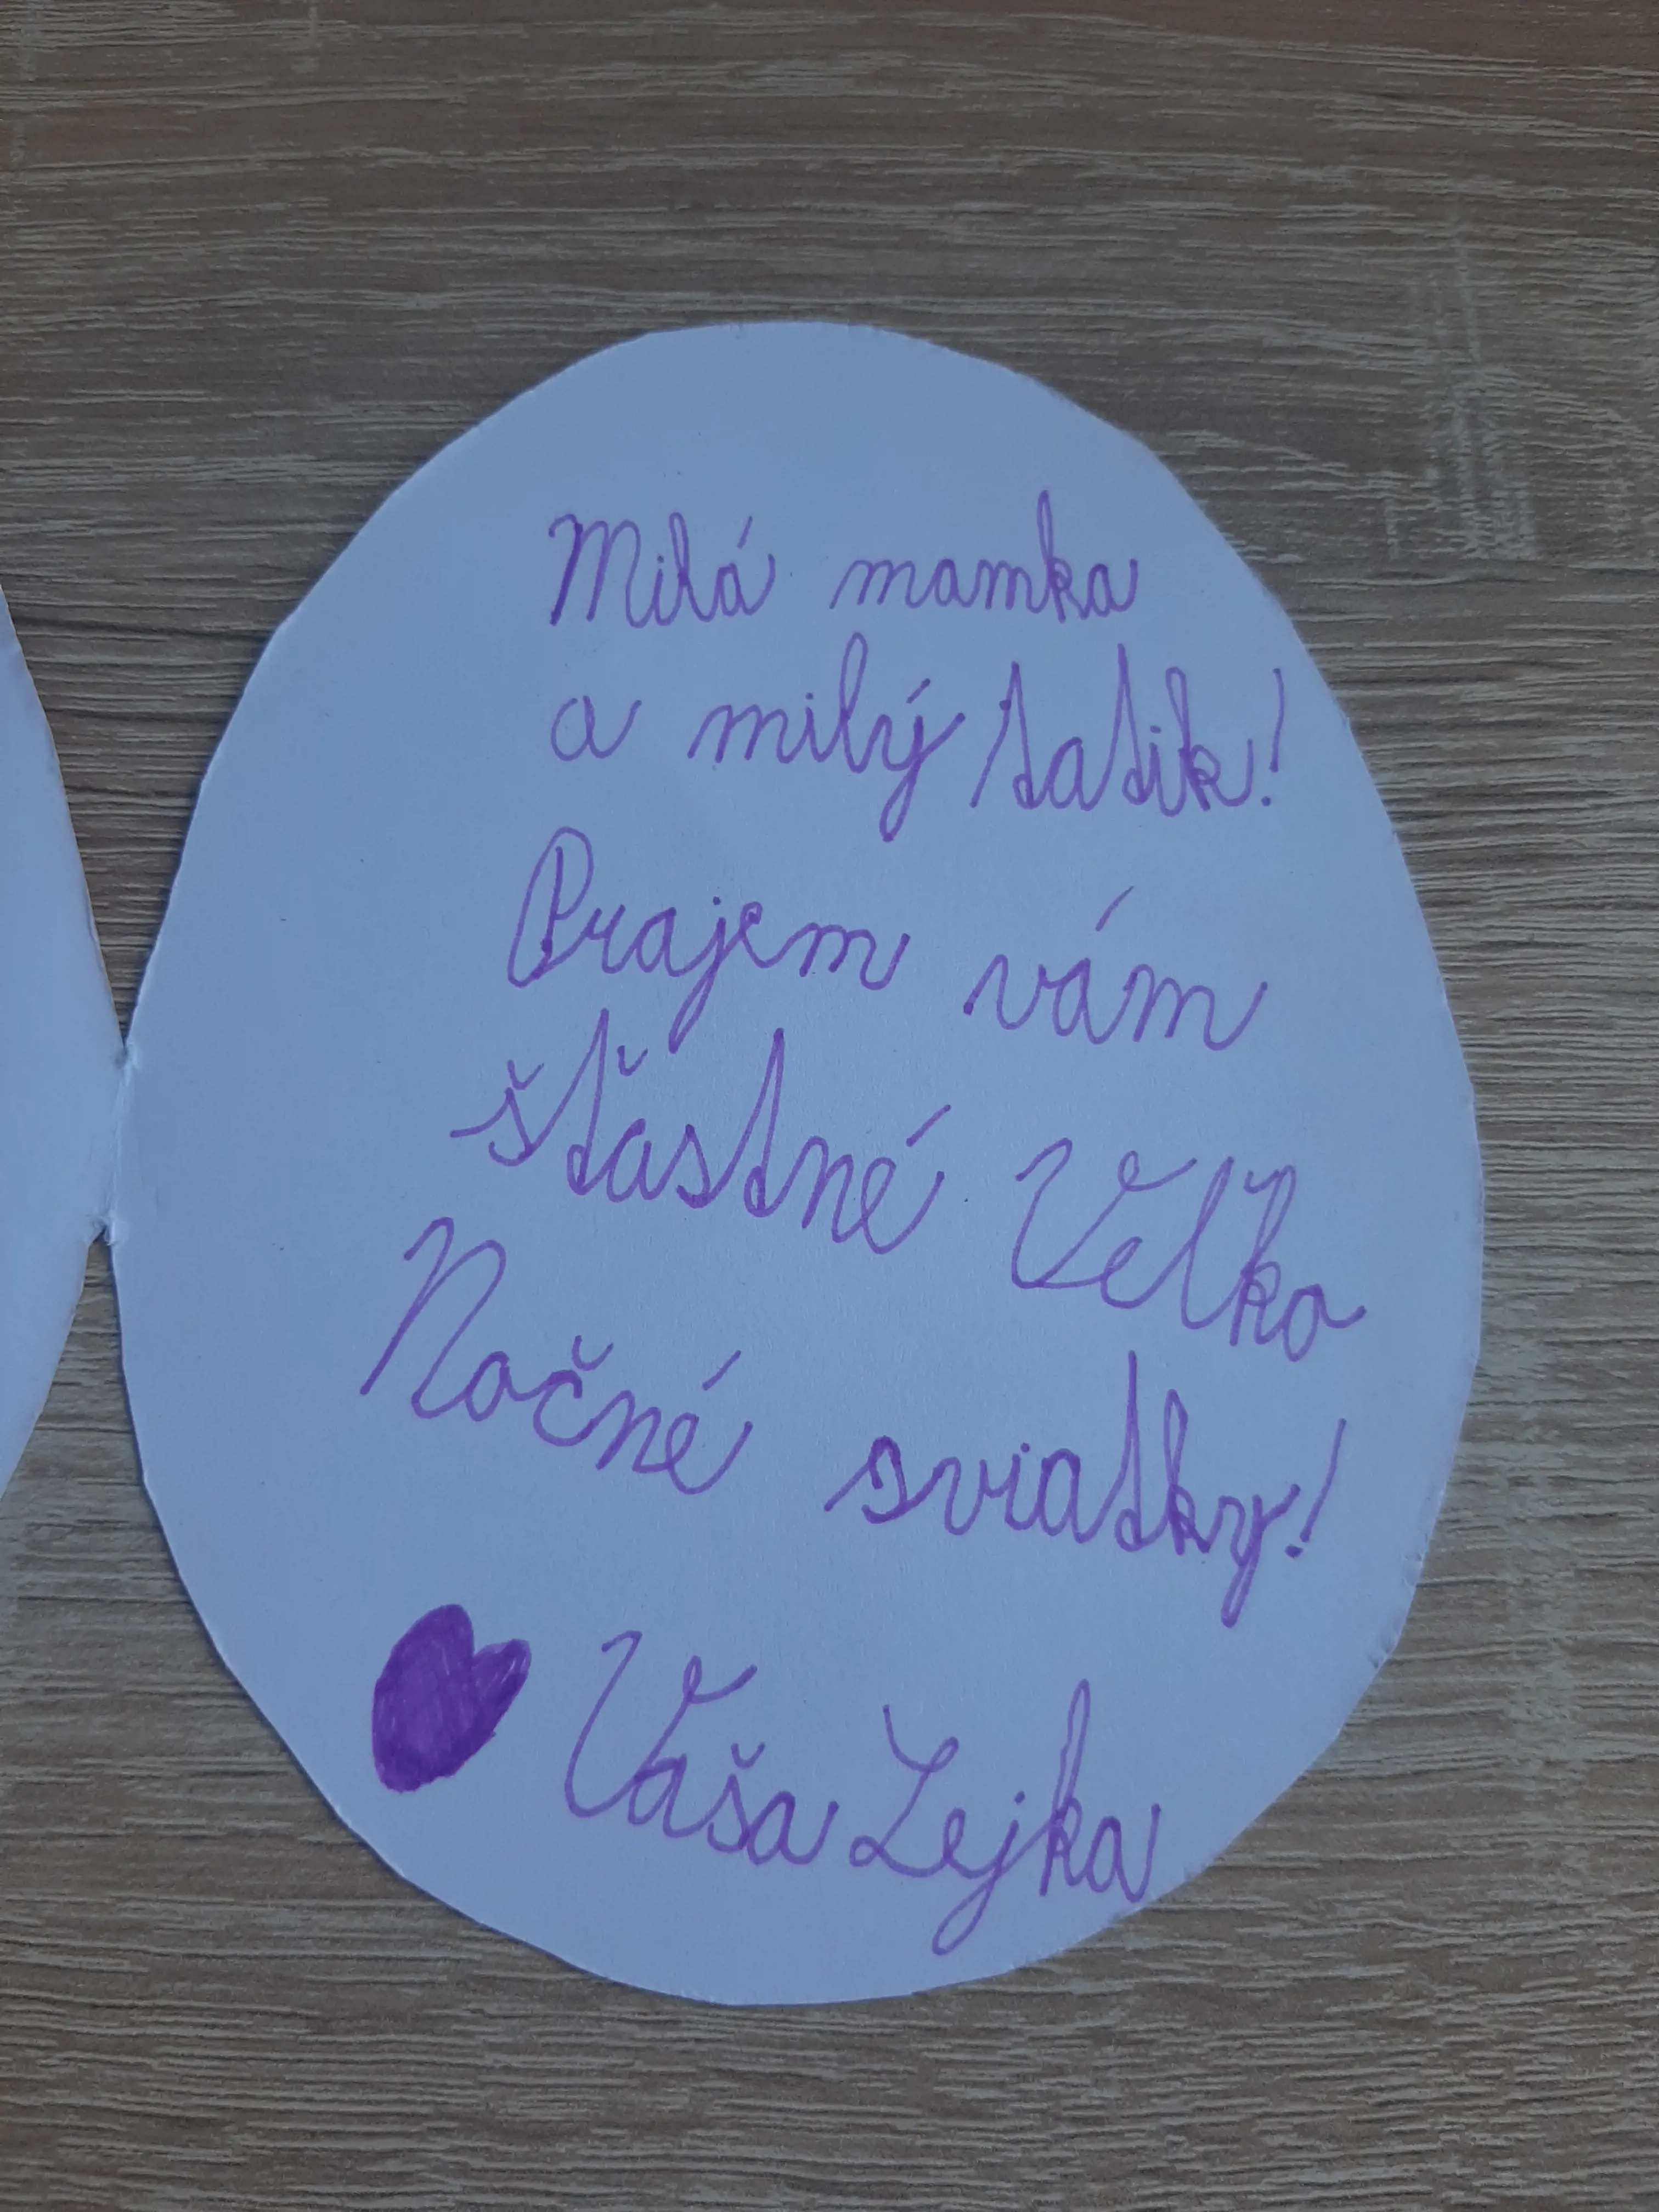 Milá mamka
a milý tatik!
Prajem vám
šťastné Veľko
Nočné sviatky!
Vaša Lejka